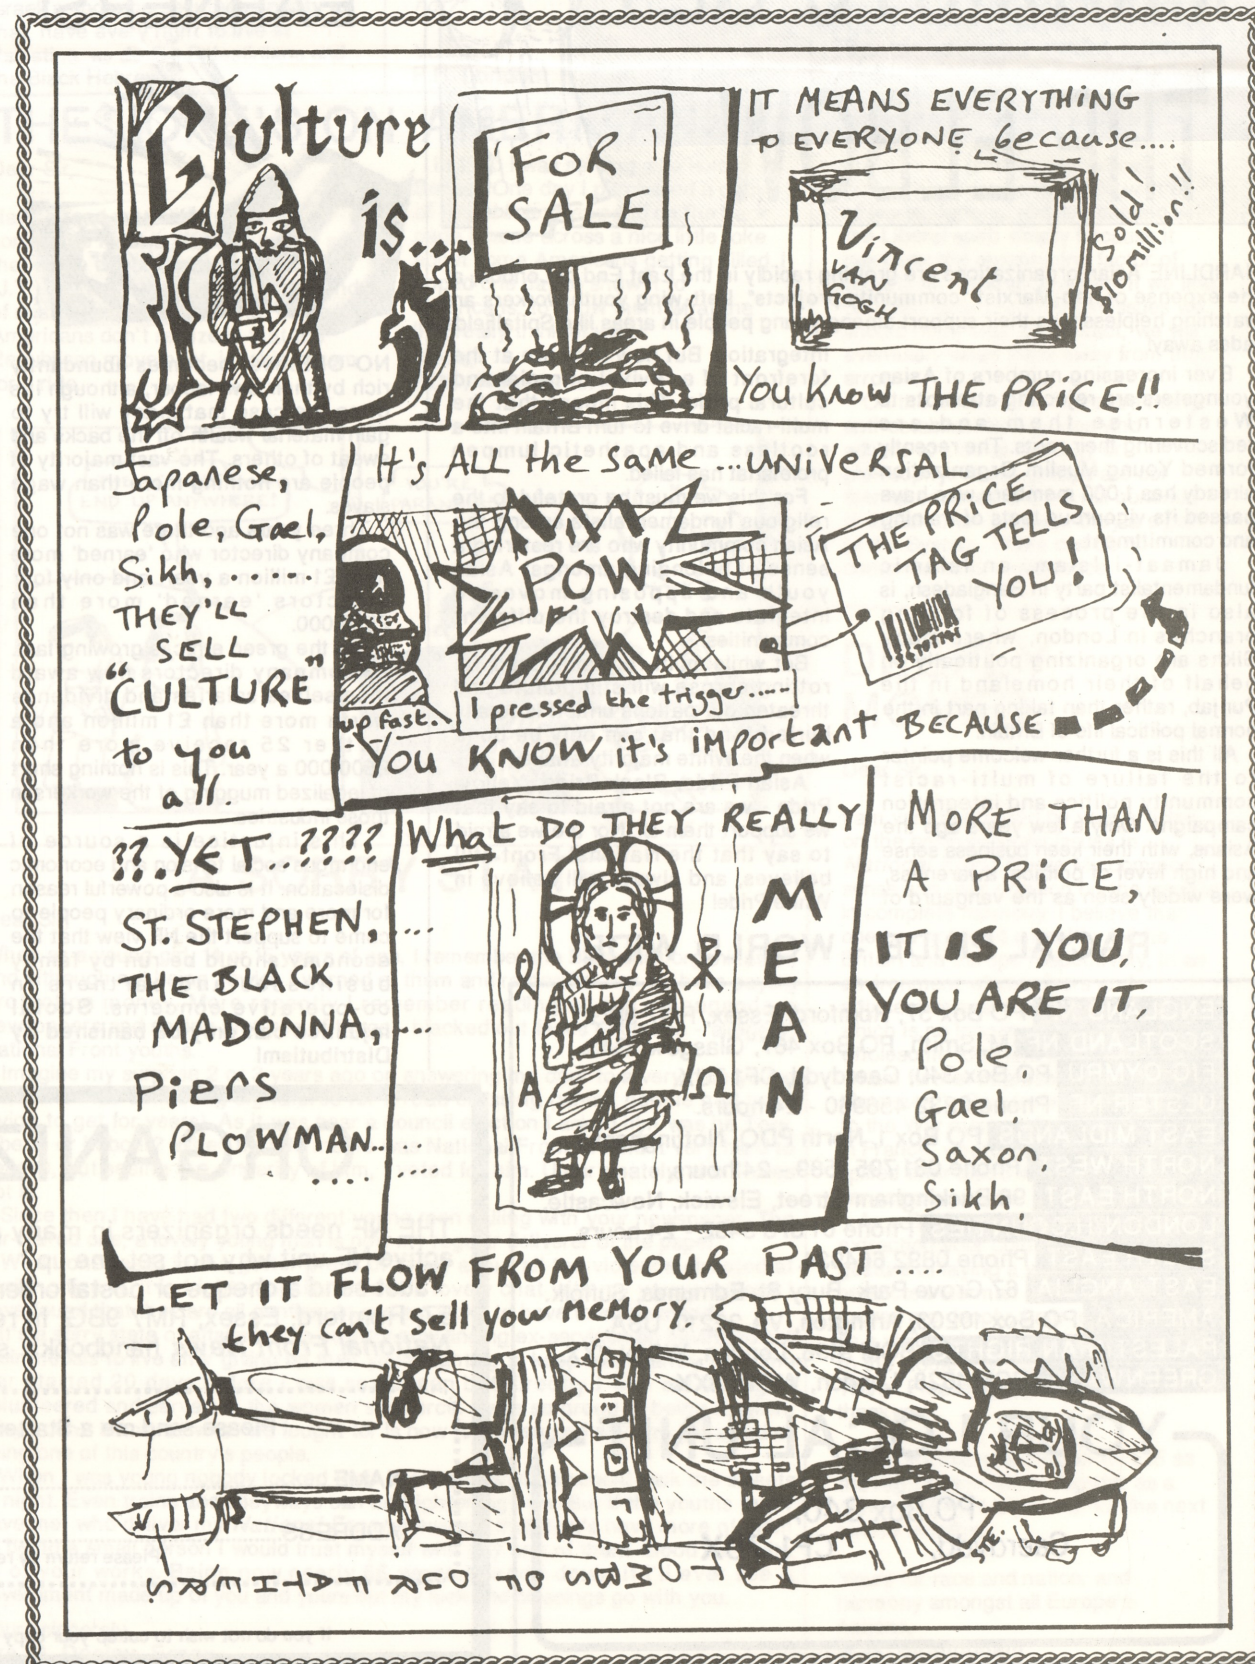 Culture
is...
FOR
SALE
IT MEANS EVERYTHING
TO EVERYONE because....
Vincent
van
Gogh
Sold!
$10million!!
You know THE PRICE!!
Japanese,
Pole, Gael,
Sikh...
THEY'LL
SELL
"CULTURE"
to you
all.
It's ALL the same - UNIVERSAL
POW
ZEN
pressed the trigger.....
You KNOW it's important BECAUSE
THE PRICE
TAG TELLS
YOU!
??.YET ????
ST. STEPHEN,....
THE BLACK
MADONNA,....
PIERS
PLOWMAN......
What DO THEY REALLY
MEAN
A Ω
MORE THAN
A PRICE,
IT IS YOU,
YOU ARE IT,
Pole
Gael
Saxon,
Sikh.
LET IT FLOW FROM YOUR PAST....
they can't sell your memory
TOMBS OF OUR FATHERS!